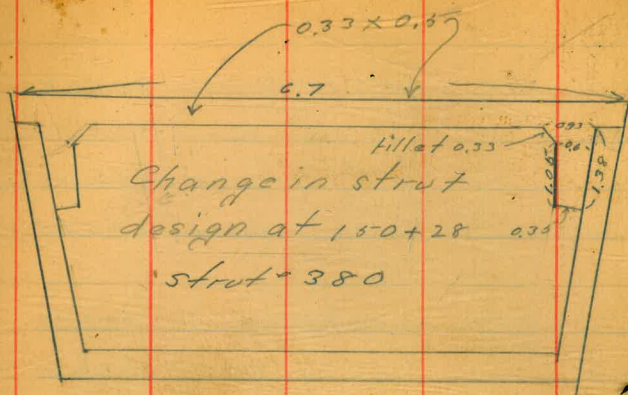 0.33 x 0.5
6.7
fillet 0.33
0.93
0.6
1.05
1.38
0.35
Change in strut
design at 150+28
strut # 380